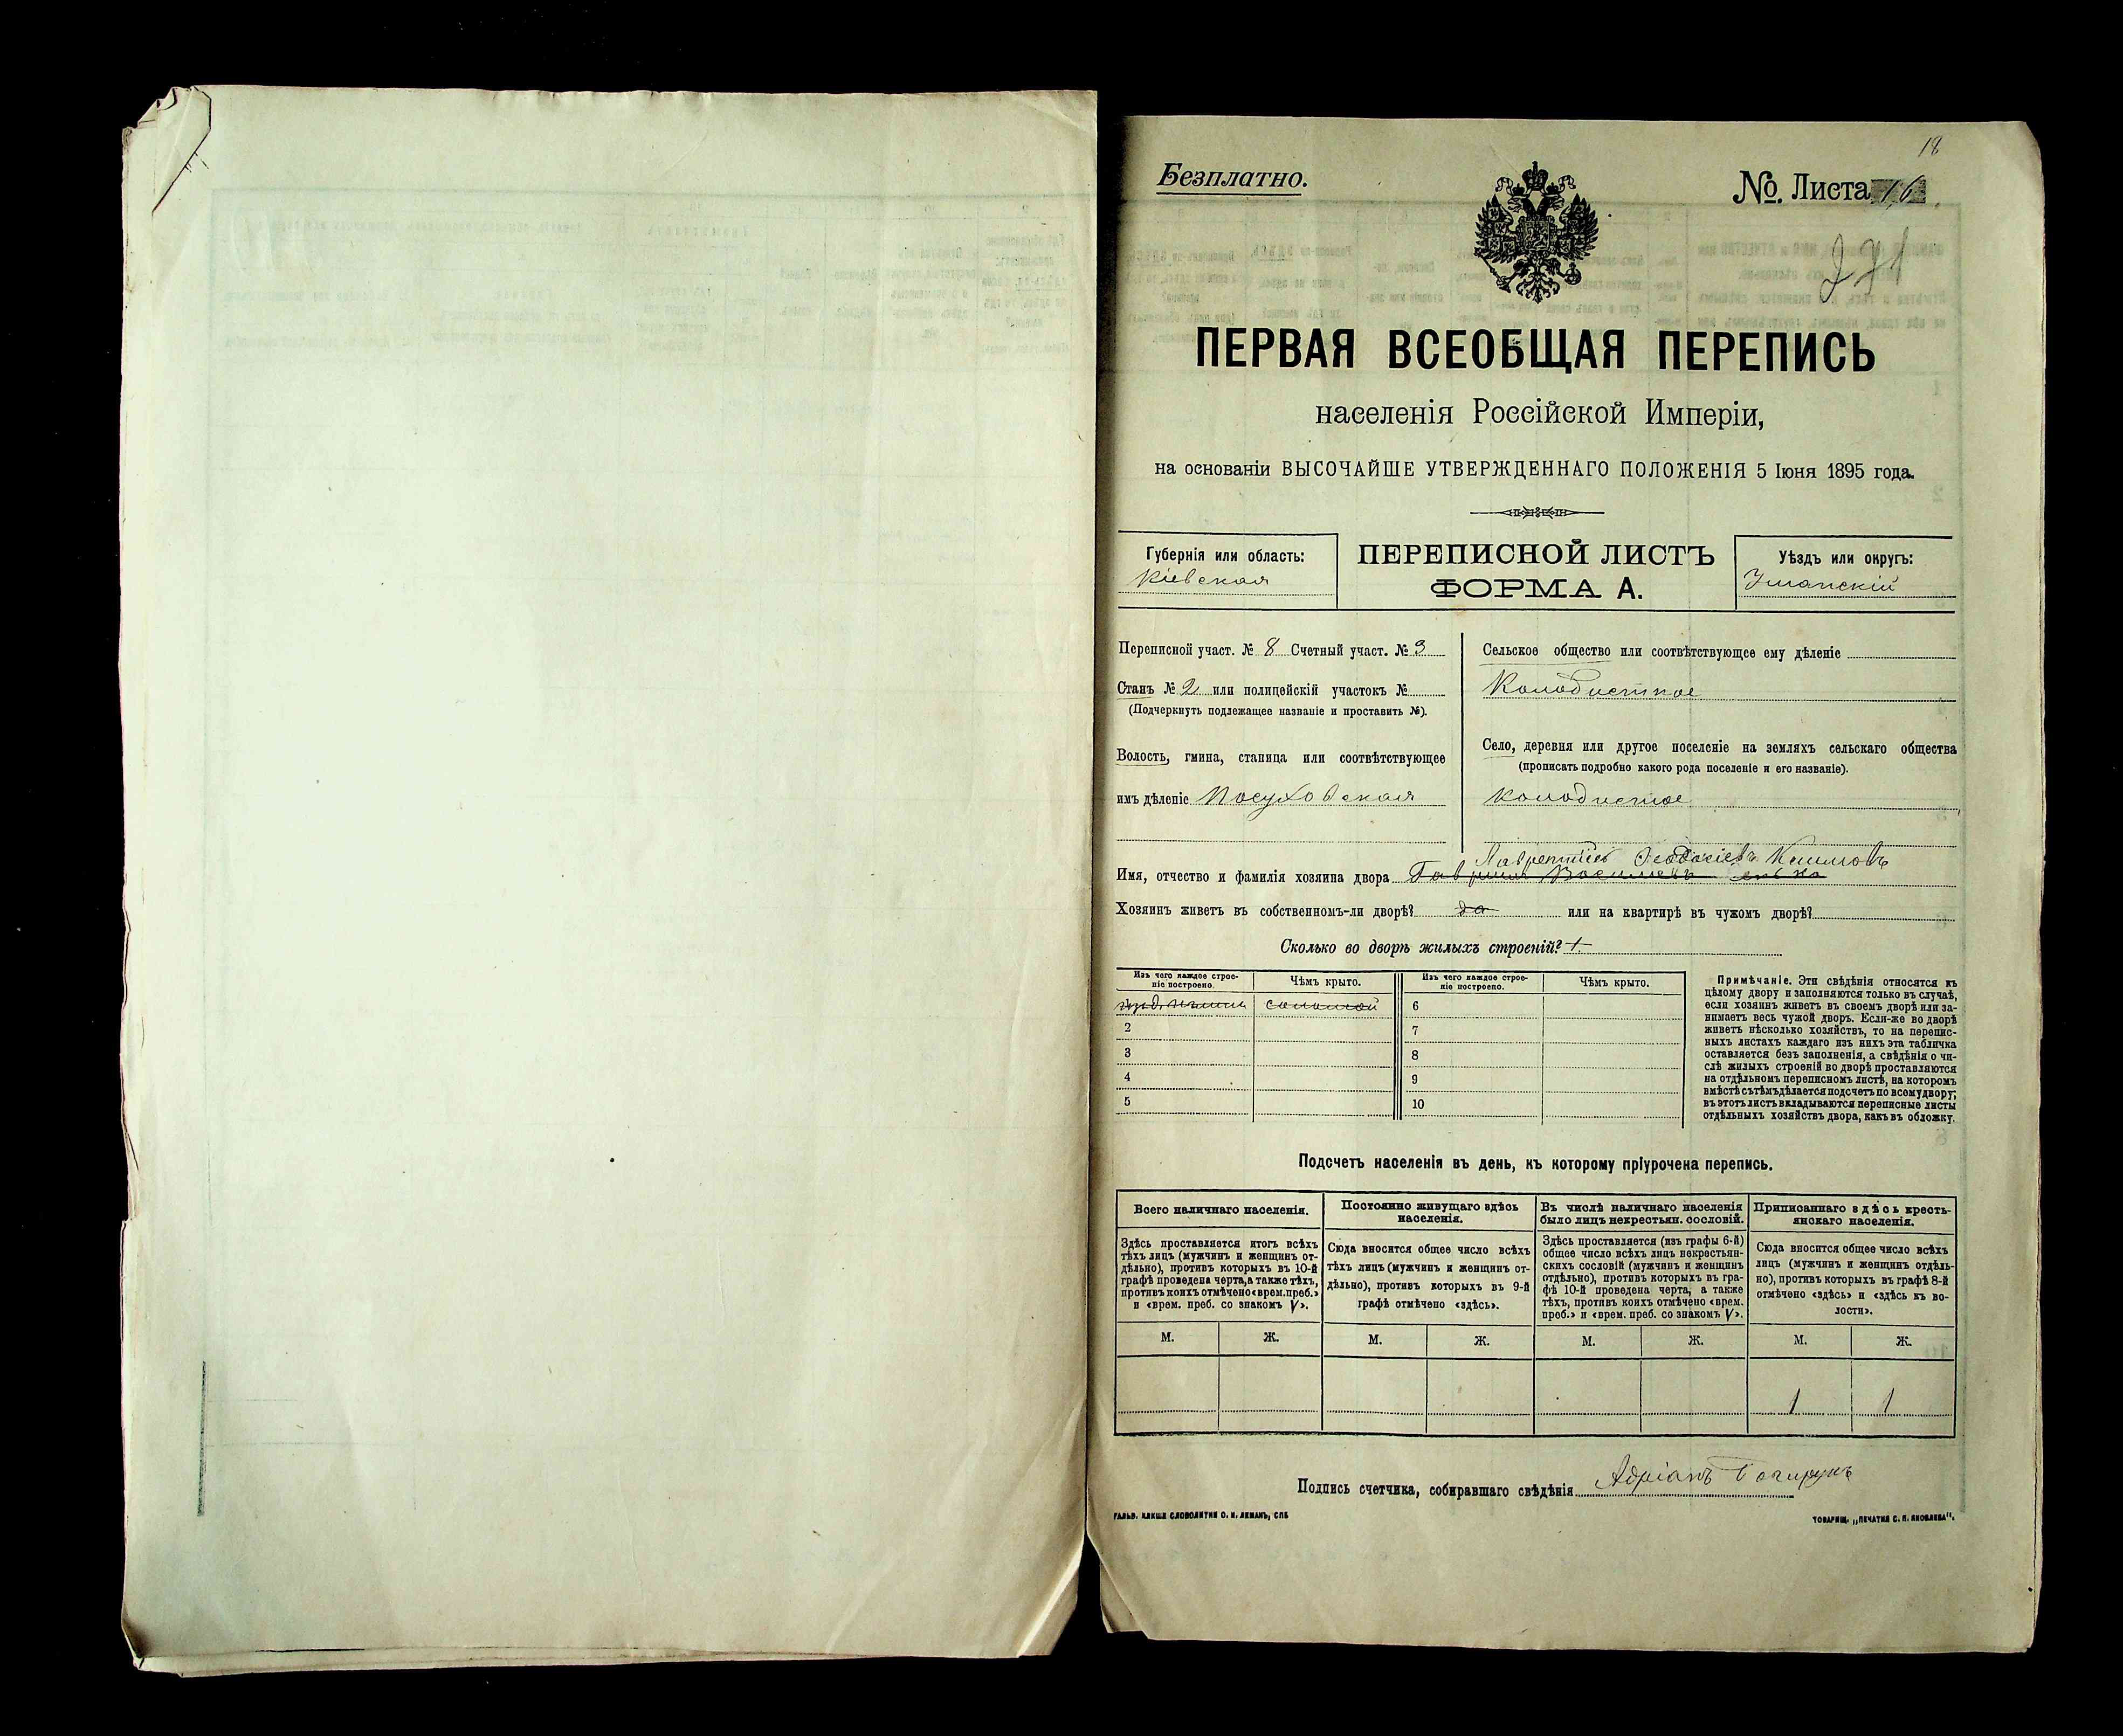 18
Безплатно.
№ Листа 16
271
ПЕРВАЯ ВСЕОБЩАЯ ПЕРЕПИСЬ
населенія Россійской Имперіи,
на основаніи ВЫСОЧАЙШЕ УТВЕРЖДЕННАГО ПОЛОЖЕНІЯ 5 Іюня 1895 года.
Губернія или область:
Кіевская
ПЕРЕПИСНОЙ ЛИСТЪ
ФОРМА А.
Уѣздъ или округъ:
Уманскій
Переписной участ. № 8 Счетный участ. № 3
Станъ № 2 или полицейскій участокъ №
(Подчеркнуть подлежащее названіе и проставить №).
Волость, гмина, станица или соотвѣтствующее
имъ дѣленіе Посуховская
Сельское общество или соотвѣтствующее ему дѣленіе
Колодистное
Село, деревня или другое поселеніе на земляхъ сельскаго общества
(прописать подробно какого рода поселеніе и его названіе).
Колодистое
Лаврентій Ѳеодосіевъ Климовъ
Имя, отчество и фамилія хозяина двора Гавріилъ Васильевъ
Хозяинъ живетъ въ собственномъ-ли дворѣ? да или на квартирѣ въ чужомъ дворѣ?
Сколько во дворѣ жилыхъ строеній? 1.
Изъ чего каждое строе-
ніе построено.
Чѣмъ крыто.
Изъ чего каждое строе-
ніе построено.
Чѣмъ крыто.
соломой
6
2
7
3
8
4
9
5
10
Примѣчаніе. Эти свѣдѣнія относятся къ
цѣлому двору и заполняются только въ случаѣ,
если хозяинъ живетъ въ своемъ дворѣ или за-
нимаетъ весь чужой дворъ. Если-же во дворѣ
живетъ нѣсколько хозяйствъ, то на перепис-
ныхъ листахъ каждаго изъ нихъ эта табличка
оставляется безъ заполненія, а свѣдѣнія о чи-
слѣ жилыхъ строеній во дворѣ проставляются
на отдѣльномъ переписномъ листѣ, на которомъ
вмѣстѣ съ тѣмъ дѣлается подсчетъ по всему двору;
въ этотъ листъ вкладываются переписные листы
отдѣльныхъ хозяйствъ двора, какъ въ обложку.
Подсчетъ населенія въ день, къ которому пріурочена перепись.
Всего наличнаго населенія.
Здѣсь проставляется итогъ всѣхъ
тѣхъ лицъ (мужчинъ и женщинъ от-
дѣльно), противъ которыхъ въ 10-й
графѣ проведена черта, а также тѣхъ,
противъ коихъ отмѣчено «врем. преб.»
и «врем. преб. со знакомъ V».
Постоянно живущаго здѣсь
населенія.
Сюда вносится общее число всѣхъ
тѣхъ лицъ (мужчинъ и женщинъ от-
дѣльно), противъ которыхъ въ 9-й
графѣ отмѣчено «здѣсь».
Въ числѣ наличнаго населенія
было лицъ некрестьян. сословій.
Здѣсь проставляется (изъ графы 6-й)
общее число всѣхъ лицъ некрестьян-
скихъ сословій (мужчинъ и женщинъ
отдѣльно), противъ которыхъ въ гра-
фѣ 10-й проведена черта, а также
тѣхъ, противъ коихъ отмѣчено «врем.
преб.» и «врем. преб. со знакомъ V».
Приписаннаго здѣсь кресть-
янскаго населенія.
Сюда вносится общее число всѣхъ
лицъ (мужчинъ и женщинъ отдѣль-
но), противъ которыхъ въ графѣ 8-й
отмѣчено «здѣсь» и «здѣсь къ во-
лости».
М. Ж. М. Ж. М. Ж. М. Ж.
1 1
Подпись счетчика, собиравшаго свѣдѣнія Адріанъ
ГАЛЬВ. КЛИШЕ СЛОВОЛИТНИ О. И. ЛЕМАНЪ, СПБ
ТОВАРИЩ. „ПЕЧАТНЯ С. П. ЯКОВЛЕВА".